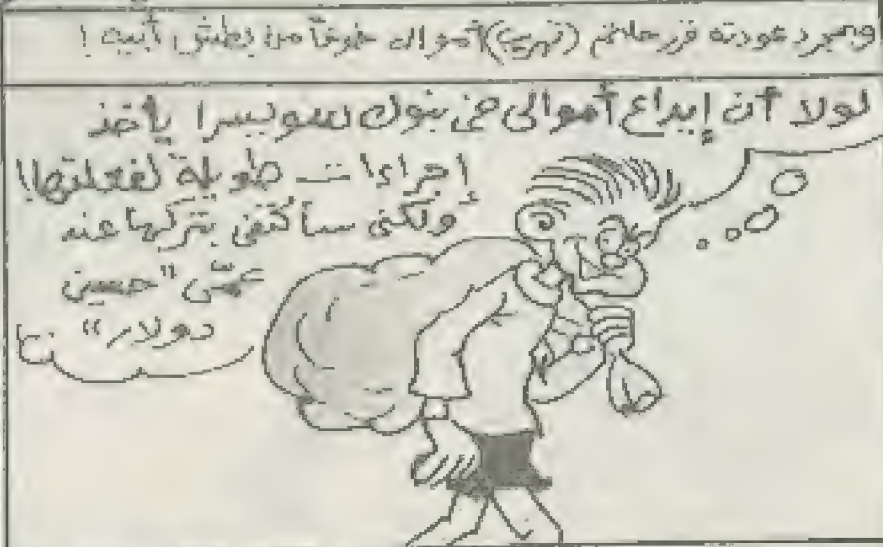 وبمجرد عودته قرر حاتم (تهريب) أمواله خوفاً من بطش أبيه !
لولا أن إيداع أموالي في بنوك سويسرا يأخذ
إجراءات طويلة لفعلتها!!
ولكني سأكتفي بتركها عند
عمّي "حسين
دولار"